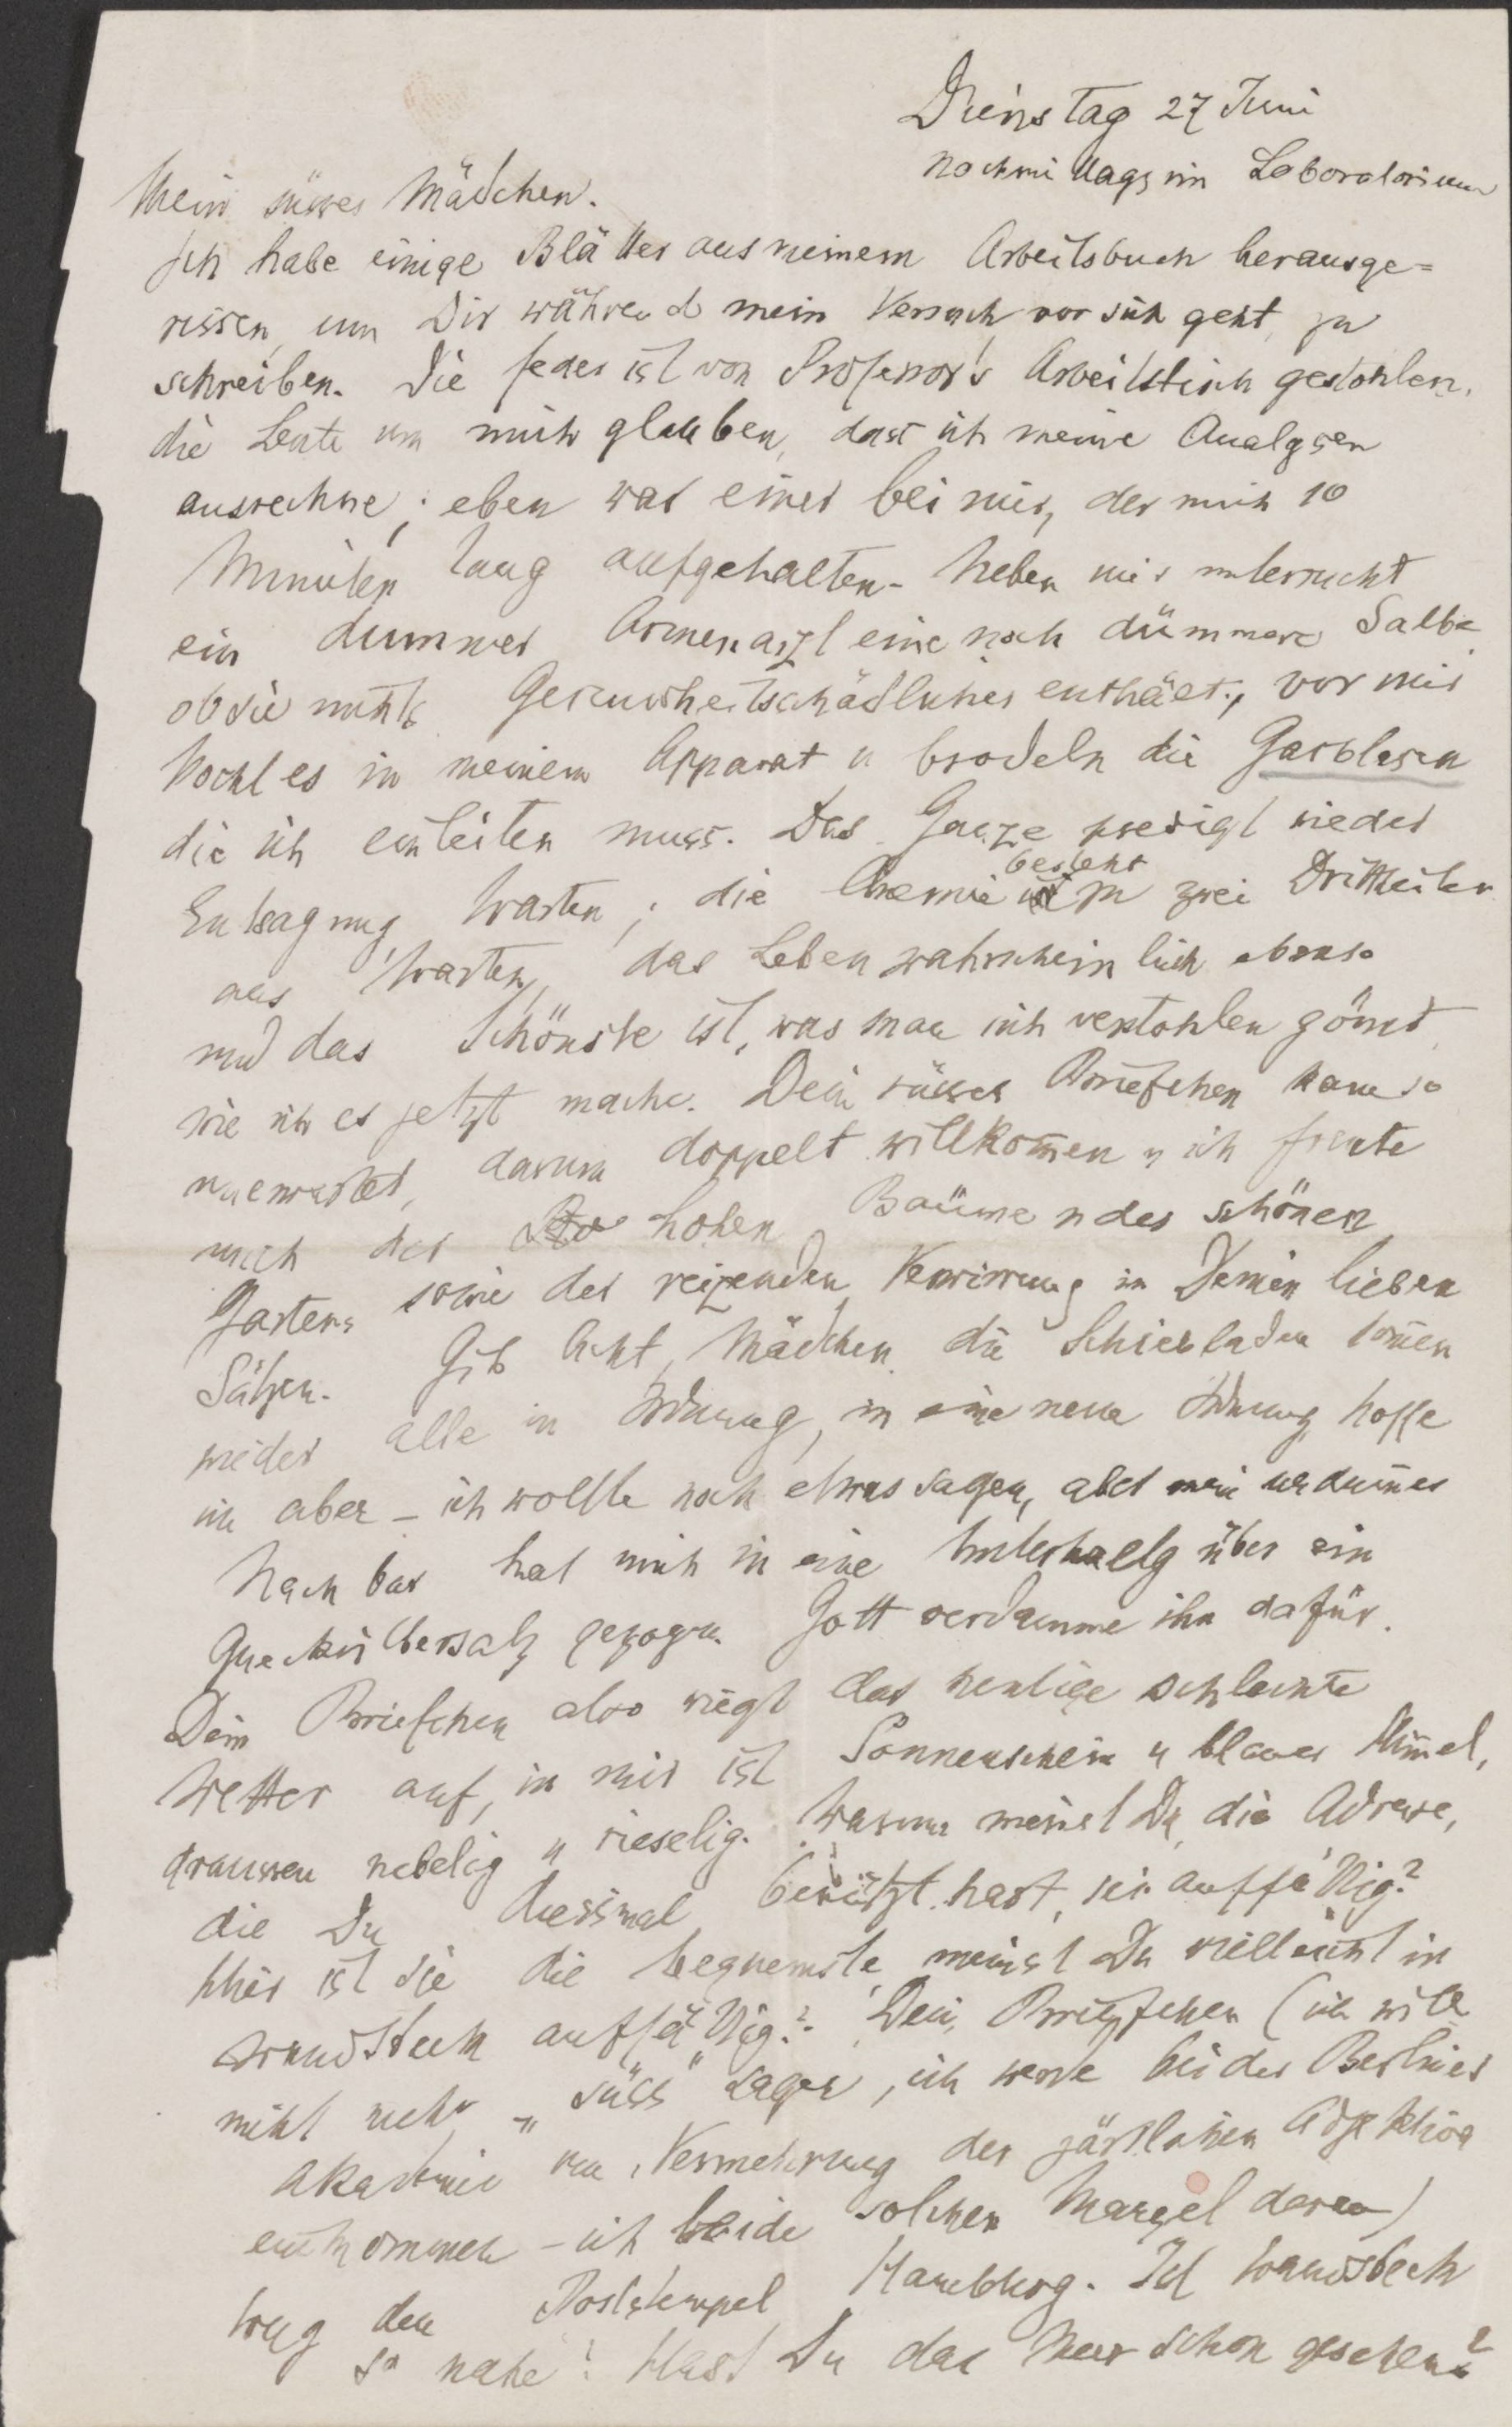 Dienstag 27 Juni
nachmittags im Laboratorium
Mein süsses Mädchen.
Ich habe einige Blätter aus meinem Arbeitsbuch herausge=
rissen, um Dir während mein Versuch vor sich geht, zu
schreiben. Die Feder ist von Professor's Arbeitstisch gestohlen,
die Leute um mich glauben, dass ich meine Analysen
ausrechne; eben war einer bei mir, der mich 10
Minuten lang aufgehalten. Neben mir untersucht
ein dummer Armenarzt eine noch dümmere Salbe
ob sie nichts Gesundheitschädliches enthält, vor mir
kocht es in meinem Apparat u brodeln die Gasblasen
die ich einleiten muss. Das Ganze predigt wieder
Entsagung Warten; die Chemie besteht zu zwei Dritttheilen
aus Warten, das Leben wahrscheinlich ebenso
und das Schönste ist, was man sich verstohlen gönnt,
wie ich es jetzt mache. Dein süsses Briefchen kam so
unerwartet, darum doppelt willkom̄en u ich freute
mich der hohen Baüme u des schönen
Gartens sowie der reizenden Verwirrung in Deinen lieben
Sätzen. Gib Acht, Mädchen, die Schiebladen kom̄en
wieder alle in Ordnung, in eine neue Ordnung, hoffe
ich aber – ich wollte noch etwas sagen, aber mein erdum̄er
Nachbar hat mich in eine Unterhaltg über ein
Quecksilbersalz gezogen. Gott verdamme ihn dafür.
Dein Briefchen also wiegt das heutige schlechte
Wetter auf, in mir ist Sonnenschein u blauer Him̄el,
draussen nebelig u rieselig. Warum meinst Du, die Adresse,
die Du diessmal benützt hast, sei auffällig?
Hier ist sie die bequemste, meinst Du vielleicht in
Wandsbeck auffällig? Dein Briefchen (ich will
nicht mehr „süss" sagen, ich werde bei der Berliner
Akademie um Vermehrung der zärtlichen Adjektiva
einkommen – ich leide solchen Mangel daran)
trug den Poststempel Hamburg. Ist Wandsbeck
so nahe? Hast Du das Meer schon gesehen?